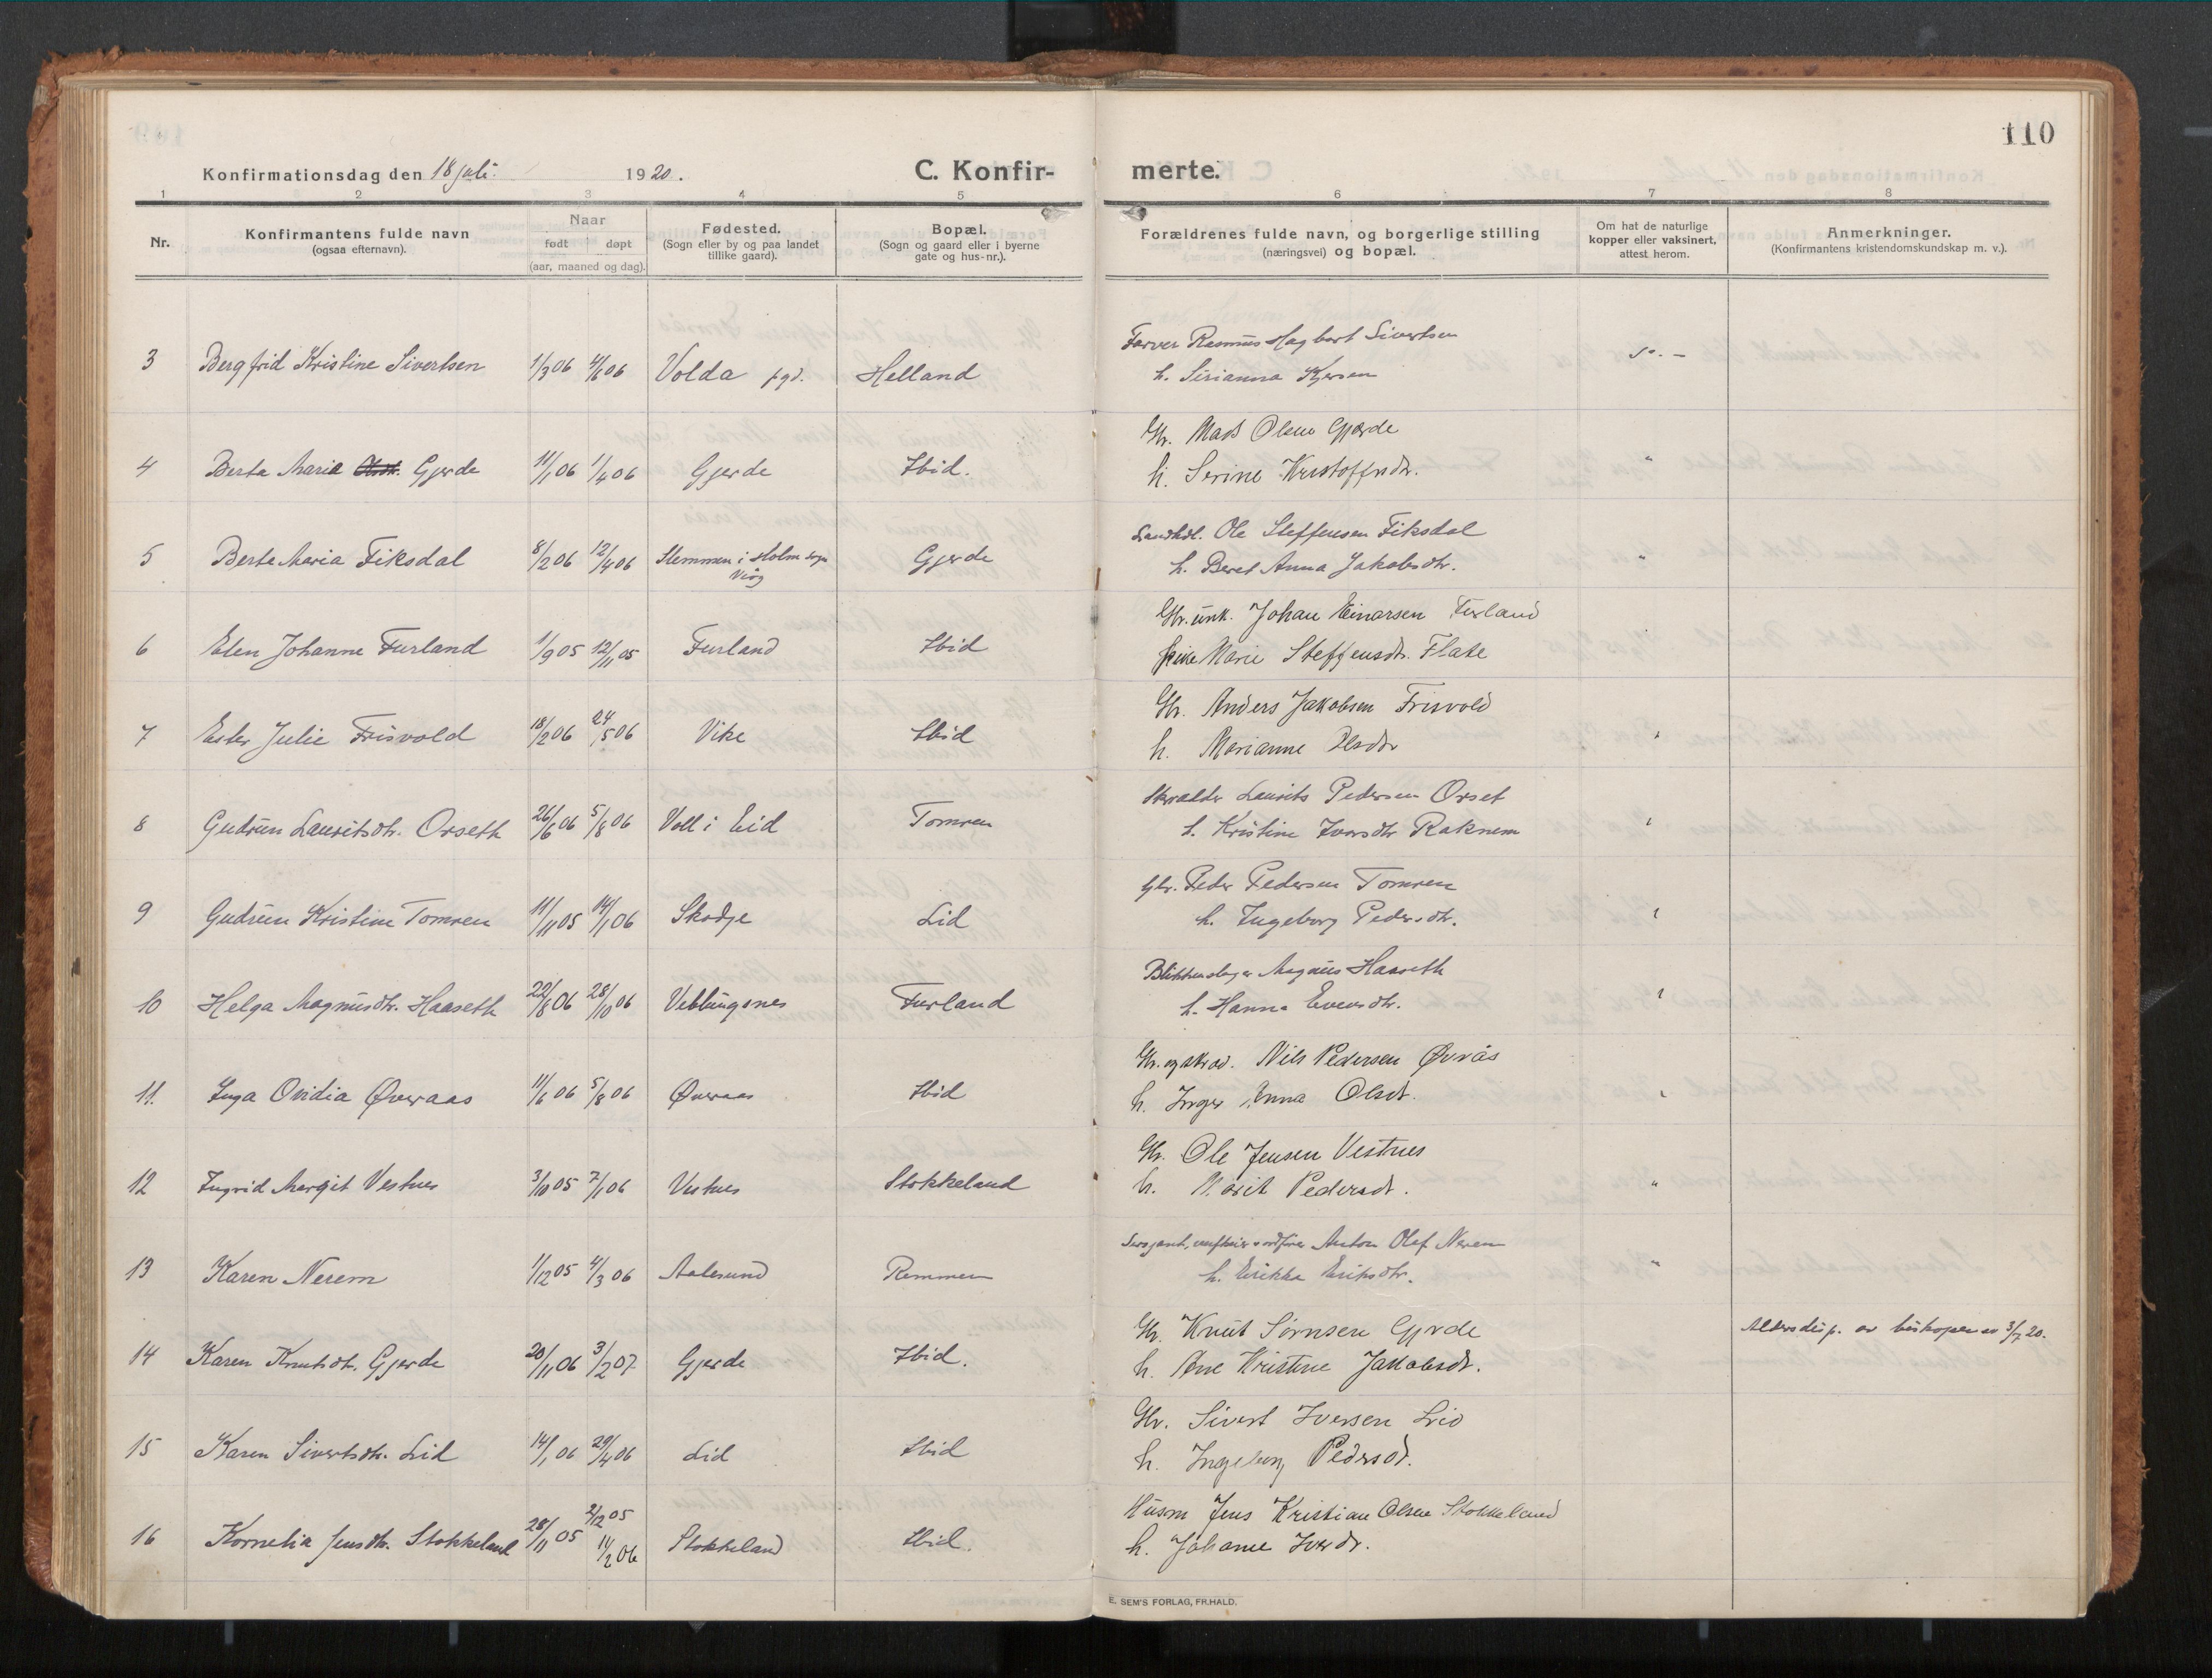 110
Konfirmationsdag den 18 juli. 1920.
C. Konfir-
merte.
1 2 3 4 5 6 7 8
Nr.
Konfirmantens fulde navn
(ogsaa efternavn).
Naar
født døpt
(aar, maaned og dag).
Fødested.
(Sogn eller by og paa landet
tillike gaard).
Bopæl.
(Sogn og gaard eller i byerne
gate og hus-nr.).
Forældrenes fulde navn, og borgerlige stilling
(næringsvei) og bopæl.
Om hat de naturlige
kopper eller vaksinert,
attest herom.
Anmerkninger.
(Konfirmantens kristendomskundskap m. v.).
Farver Rasmus Hagbart Sivertsen
3 Bergfrid Kristine Sivertsen 1/3 06 4/6 06 Volda pgd. Helland
h. Sirianna
Gbr. Mads Olsen Gjærde
4 Berte Maria Gjerde 11/1 06 1/4 06 Gjerde Ibid. "
h. Serine Kristoffersdtr.
Landhdl. Ole Steffensen Fiksdal
5 Berte Maria Fiksdal 8/2 06 12/4 06 Stemmen i Holm sogn Gjerde "
Veøy
h. Beret Anna Jakobsdtr.
Gbr. unk. Johan Einarsen Furland
6 Elen Johanne Furland 1/9 05 12/11 05 Furland Ibid
Marie Steffensdtr. Flate
Gbr. Anders Jakobsen Frisvold
7 Ester Julie Frisvold 18/2 06 24/5 06 Vike Ibid
h. Marianne Olsdtr
Skrædder Laurits Pedersen Orset
8 Gudrun Lauritsdtr. Orseth 26/6 06 5/8 06 Voll i Eid Tomren
h. Kristine Iversdtr Raknem
Gbr. Peder Pedersen Tomren
9 Gudrun Kristine Tomren 11/11 05 14/1 06 Skodje Lid
h. Ingeborg Pedersdtr.
Blikkenslager Magnus Haaseth
10 Helga Magnusdtr. Haaseth 22/8 06 28/10 06 Veblungsnes Furland
h. Hanna Evensdtr.
Gbr. og skræd. Nils Pedersen Øvrås
11. Inga Ovidia Øveraas 11/6 06 5/8 06 Øveraas Ibid
h. Inger Anna Olsdt.
Gbr. Ole Jensen Vestnes
12 Ingrid Margit Vestnes 3/10 05 7/1 06 Vestnes Stokkeland "
h. Marit Pedersdt.
Sersjant, Anton Olaf Nerem
13 Karen Nerem 1/12 05 4/3 06 Aalesund Remmen "
h. Erikka Eriksdtr.
Gbr. Knut Sørnsen Gjerde
Aldersdisp. av biskopen av 3/7 20.
14 Karen Knutsdtr. Gjerde 20/11 06 3/2 07. Gjerde Ibid.
h. Ane Kristine Jakobsdt.
Gbr. Sivert Iversen Lid
15 Karen Sivertsdtr. Lid 14/1 06 29/4 06 Lid Ibid
h. Ingeborg Pedersdt.
Husm Jens Kristian Olsen Stokkeland
2/12 05
16 Kornelia Jensdtr. Stokkeland 28/11 05 11/2 06 Stokkeland Ibid.
h. Johanne Iversdr.
E. SEM'S FORLAG, FR.HALD.